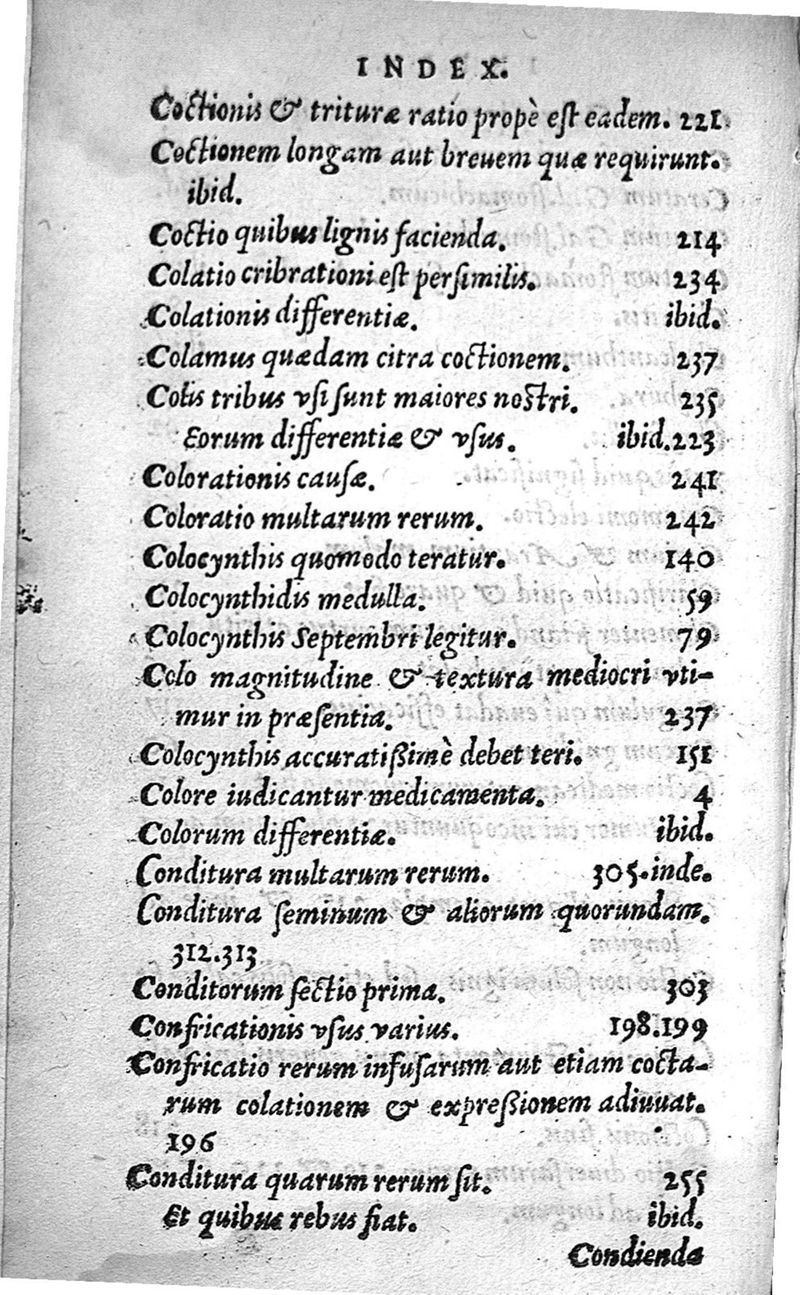 INDEX.
Coctionis & trituræ ratio propè est eadem. 221.
Coctionem longam aut breuem quæ requirunt.
ibid.
Coctio quibus lignis facienda. 214
Colatio cribrationi est persimilis. 234
Colationis differentiæ. ibid.
Colamus quædam citra coctionem. 237
Colis tribus vsi sunt maiores nostri. 235
Eorum differentiæ & vsus. ibid.223
Colorationis causæ. 241
Coloratio multarum rerum. 242
Colocynthis quomodo teratur. 140
Colocynthidis medulla. 59
Colocynthis Septembri legitur. 79
Colo magnitudine & textura mediocri vti-
mur in præsentia. 237
Colocynthis accuratißimè debet teri. 151
Colore iudicantur medicamenta. 4
Colorum differentiæ. ibid.
Conditura multarum rerum. 305.inde.
Conditura seminum & aliorum quorundam.
312.313
Conditorum sectio prima. 303
Confricationis vsus varius. 198.199
Confricatio rerum infusarum aut etiam cocta-
rum colationem & expreßionem adiuuat.
196
Conditura quarum rerum sit. 255
Et quibus rebus fiat. ibid.
Condienda